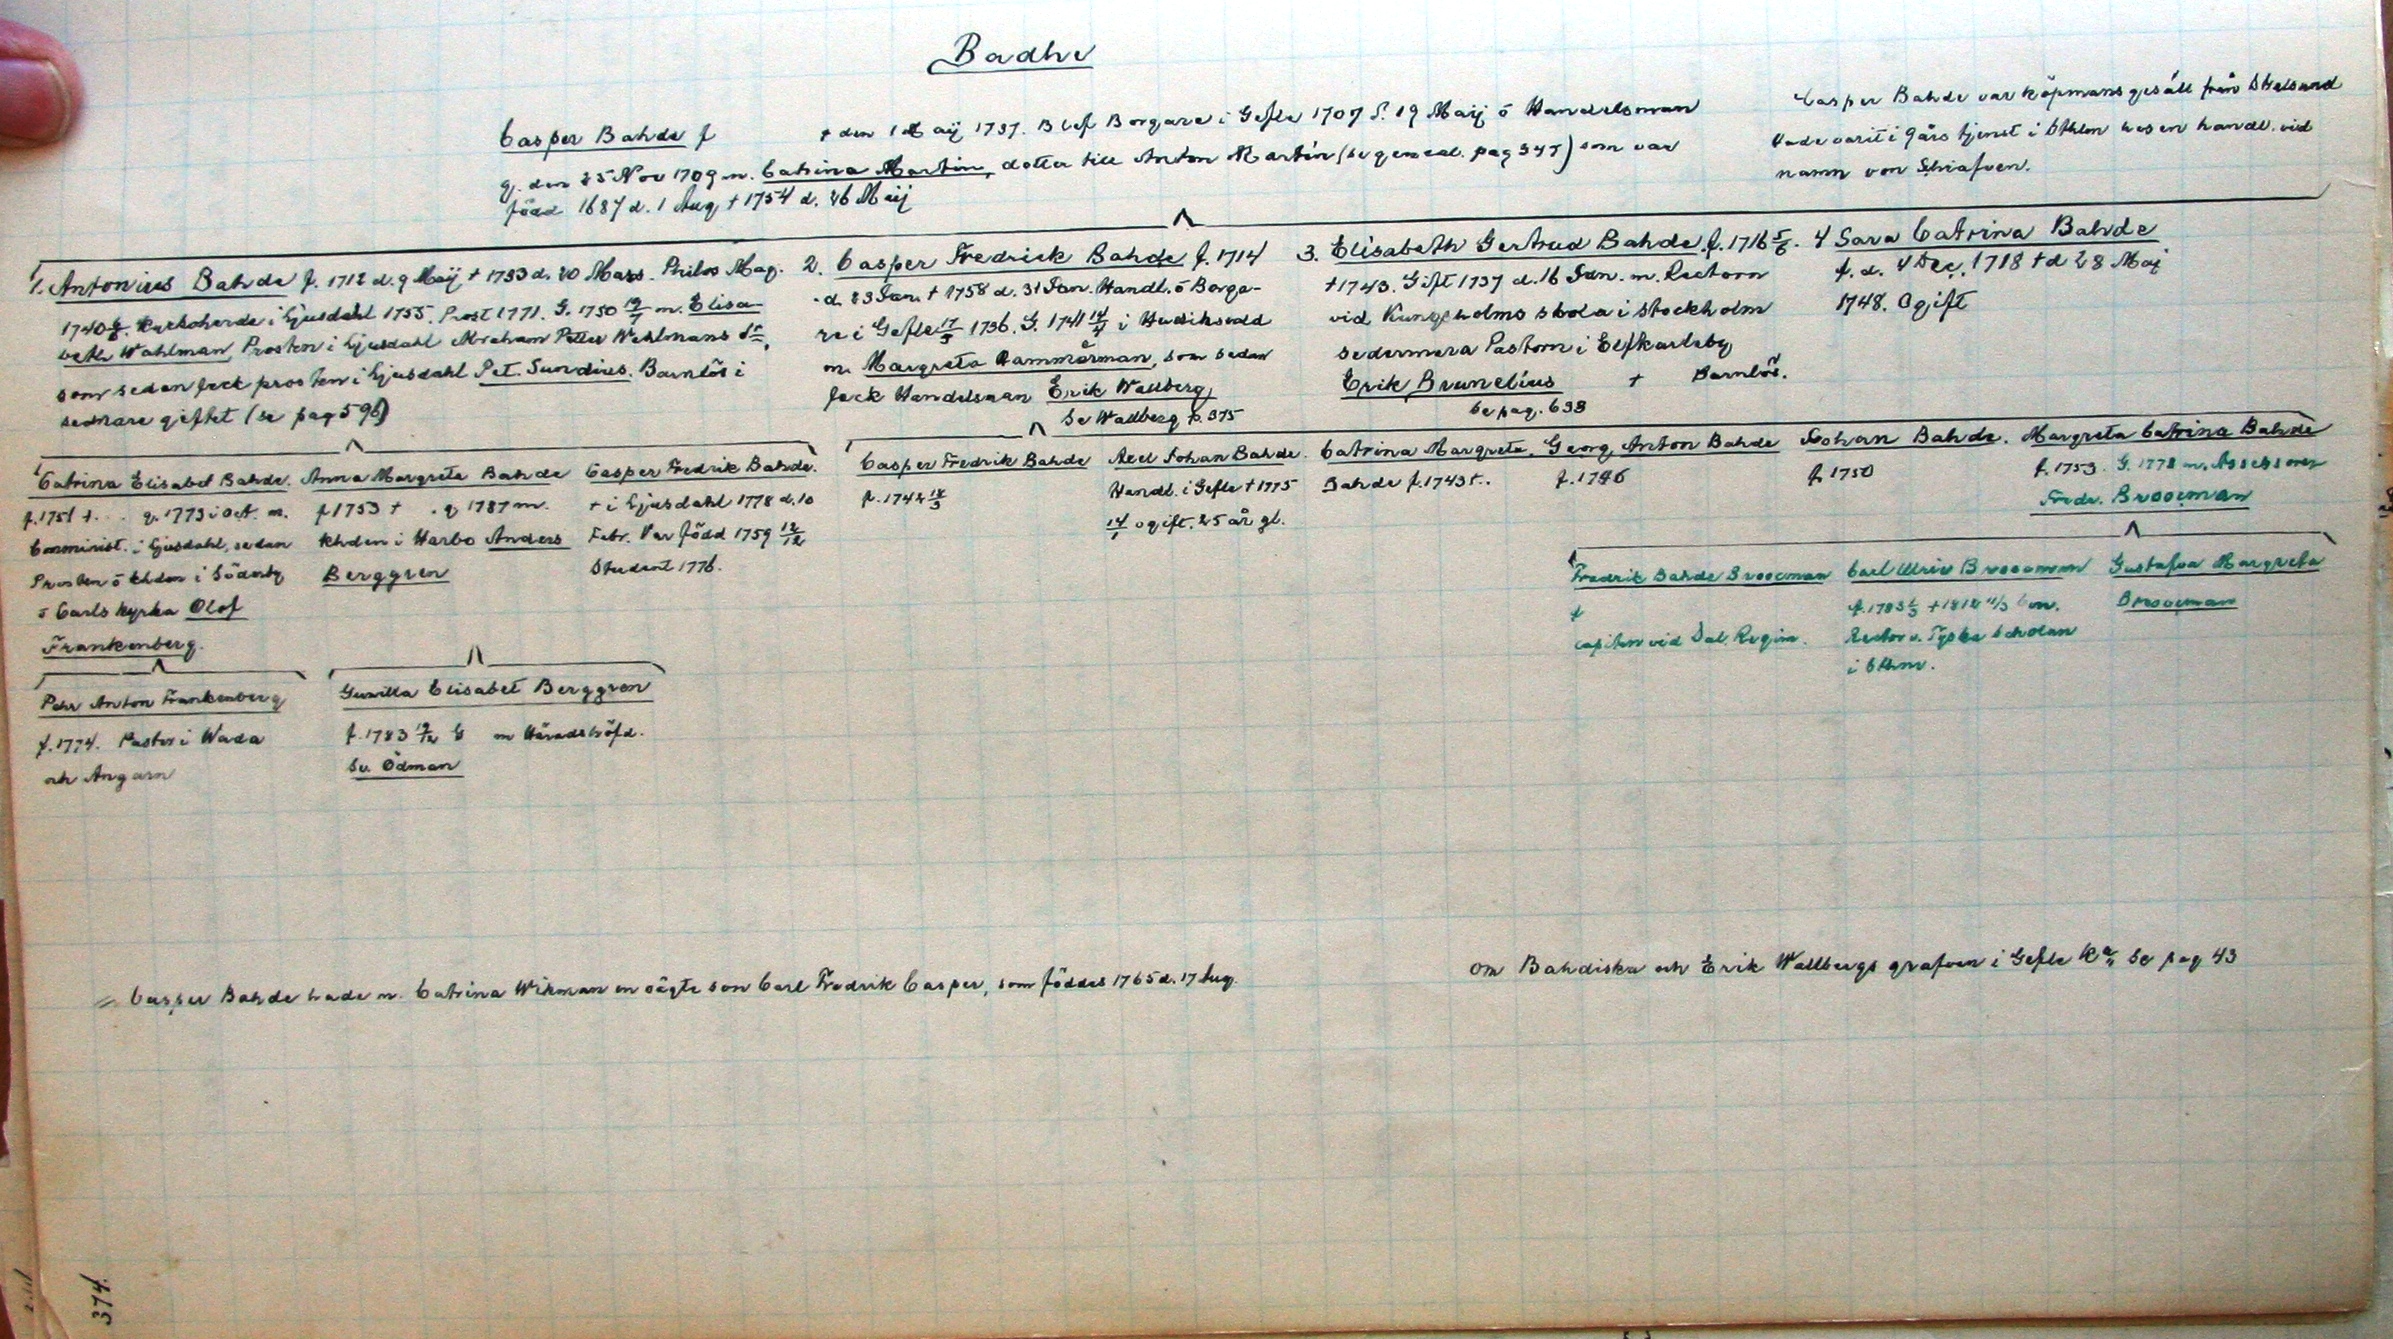 Badhe
Casper Bahde f † den 1 Maij 1737. Blef Borgare i Gefle 1707 d. 19 Maij ō Handelsman
g. den 25 Nov 1709 m. Catrina Martin, dotter till Anton Martin (se geneal. pag 345) som var
född 1687 d. 1 Aug † 1754 d. 26 Maij
Casper Bahde var köpmansgesäll från Stralsund
hade varit i 9 års tjenst i Sthlm hos en handl. vid
namn von Schiafven.
1. Antonius Bahde f. 1712 d. 9 Maij † 1783 d. 20 Mars. Philos Mag.
1740 Kyrkoherde i Ljusdahl 1755. Prost 1771. G. 1750 m. Elisa-
beth Wahlman, Prosten i Ljusdahl Abraham Petter Wahlmans dr,
som sedan feck prosten i Ljusdahl Pet. Sundius. Barnlös i
sednare giftet (se pag 596)
2. Casper Fredrick Bahde f. 1714
d. 23 Jan. † 1758 d. 31 Jan. Handl. ō Borga-
re i Gefle 17/5 1736. G. 1741 14/4 i Hudikswald
m. Margreta Hammarman, som sedan
feck Handelsman Erik Wallberg
Se Wallberg p. 375
3. Elisabeth Gertrud Bahde f. 1716 5/6.
† 1743. Gift 1737 d. 16 Jan. m. Rectorn
vid Kungsholms skola i Stockholm
sedermera Pastorn i Elfkarleby
Erik Brunelius † Barnlös.
se pag. 633
4 Sara Catrina Bahde
f. d. 4 Dec. 1718 † d 28 Maj
1748. Ogift
Catrina Elisabet Bahde.
f. 1751 †. g. 1773 i Oct. m.
Comminist. i Ljusdahl, sedan
Prosten ō khden i Söderby
ō Carls kyrka Olof
Frankenberg.
Anna Margreta Bahde
f 1753 † . g 1787 m.
Khden i Harbo Anders
Berggren
Casper Fredrik Bahde.
† i Ljusdahl 1778 d. 10
Febr. Var född 1759 12/12
Student 1776.
Casper Fredrik Bahde
f. 1742 14/3
Axel Johan Bahde.
Handl. i Gefle † 1775
14/1 ogift. 25 år gl.
Catrina Margreta
Bahde f. 1743 †.
Georg Anton Bahde
f. 1746
Johan Bahde.
f. 1750
Margreta Catrina Bahde
f. 1753. G. 1778 m. Assessoren
Fredr. Broocman
Fredrik Bahde Broocman
f
capiten vid Dal. Regim.
Carl Ulric Broocman
f. 1783 † 1812 11/3 m.
Rector v. Tyska Scholan
i Sthm.
Gustafva Margreta
Broocman
Pehr Anton Frankenberg
f. 1774. Pastor i Wada
och Angarn
Gunilla Elisabet Berggren
f. 1783 19/12 G m Häradshöfd.
Sv. Ödman
Casper Bahde hade m. Catrina Wikman en oägte son Carl Fredrik Casper, som föddes 1765 d. 17 Aug.
Om Bahdiska och Erik Wallbergs grafven i Gefle Ka se pag 43
374.